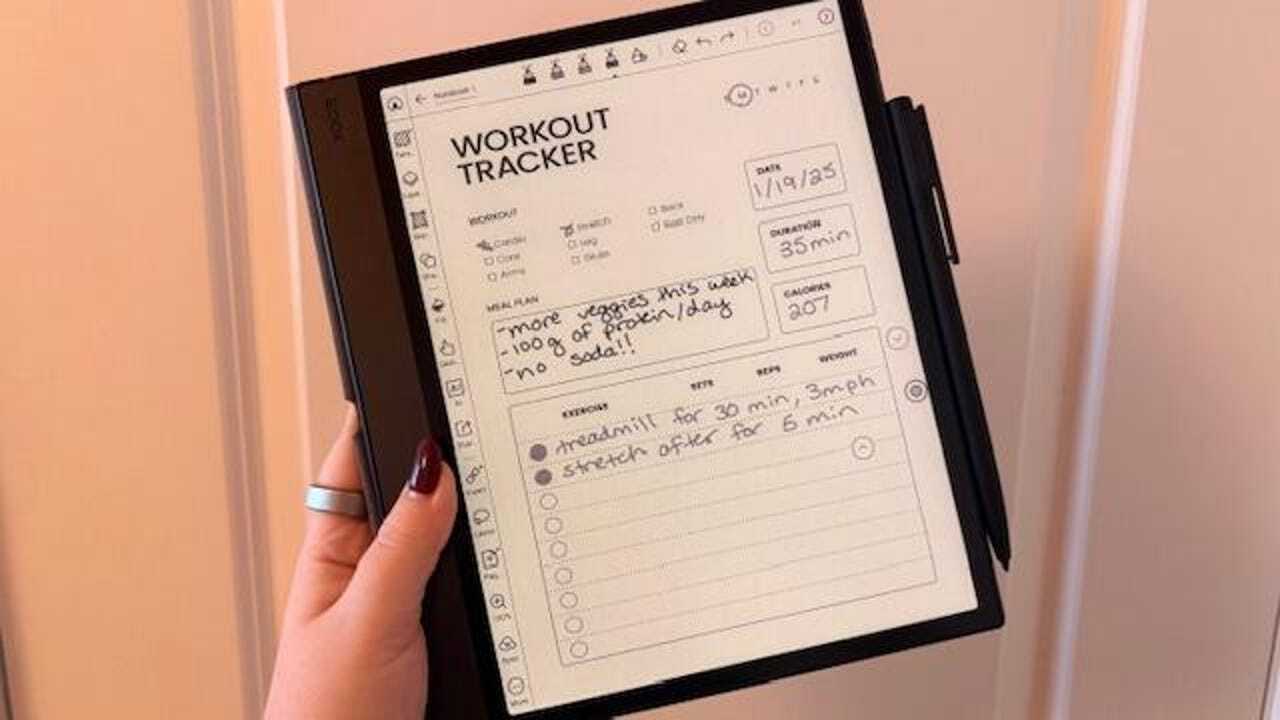 BOOX
Notebook 1
M T W T F S
WORKOUT
TRACKER
DATE
1/19/25
WORKOUT
Cardio
Stretch
Back
Core
Leg
Rest Day
Arms
Glute
DURATION
35min
MEAL PLAN
-more veggies this week
-100g of protein/day
-no soda!!
CALORIES
207
EXERCISE SETS REPS WEIGHT
treadmill for 30 min, 3mph
stretch after for 5 min
100%
More